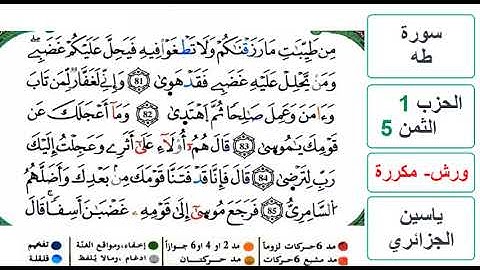 مِن طَيِّبَٰتِ مَا رَزَقْنَٰكُمْ وَلَا تَطْغَوْاْ فِيهِ فَيَحِلَّ عَلَيْكُمْ غَضَبِے
وَمَنْ يَّحْلِلْ عَلَيْهِ غَضَبِے فَقَدْ هَوِىٰ 81 وَإِنِّے لَغَفَّارٌ لِّمَن تَابَ
وَءَامَنَ وَعَمِلَ صَٰلِحاً ثُمَّ اَهْتَدِىٰ 82 وَمَا أَعْجَلَكَ عَن
قَوْمِكَ يَٰمُوسِىٰ 83 قَالَ هُمُ أُوْلَآءِ عَلَىٰ أَثَرِے وَعَجِلْتُ إِلَيْكَ
رَبِّ لِتَرْضِىٰ 84 قَالَ فَإِنَّا قَدْ فَتَنَّا قَوْمَكَ مِنۢ بَعْدِكَ وَأَضَلَّهُمُ
السَّامِرِيُّ 85 فَرَجَعَ مُوسِىٰ إِلَىٰ قَوْمِهِۦ غَضْبَٰنَ أَسِفاً قَالَ
مد 6 حركات لزوما
مد 2 او 4 او 6 جوازا
إخفاء، ومواقع الغنة
تفخيم
مد مشبع 6 حركات
مد حركتان
ادغام، ومالا يُلفظ
قلقلة
سورة
طه
الحزب 1
الثمن 5
ورش- مكررة
ياسين
الجزائري